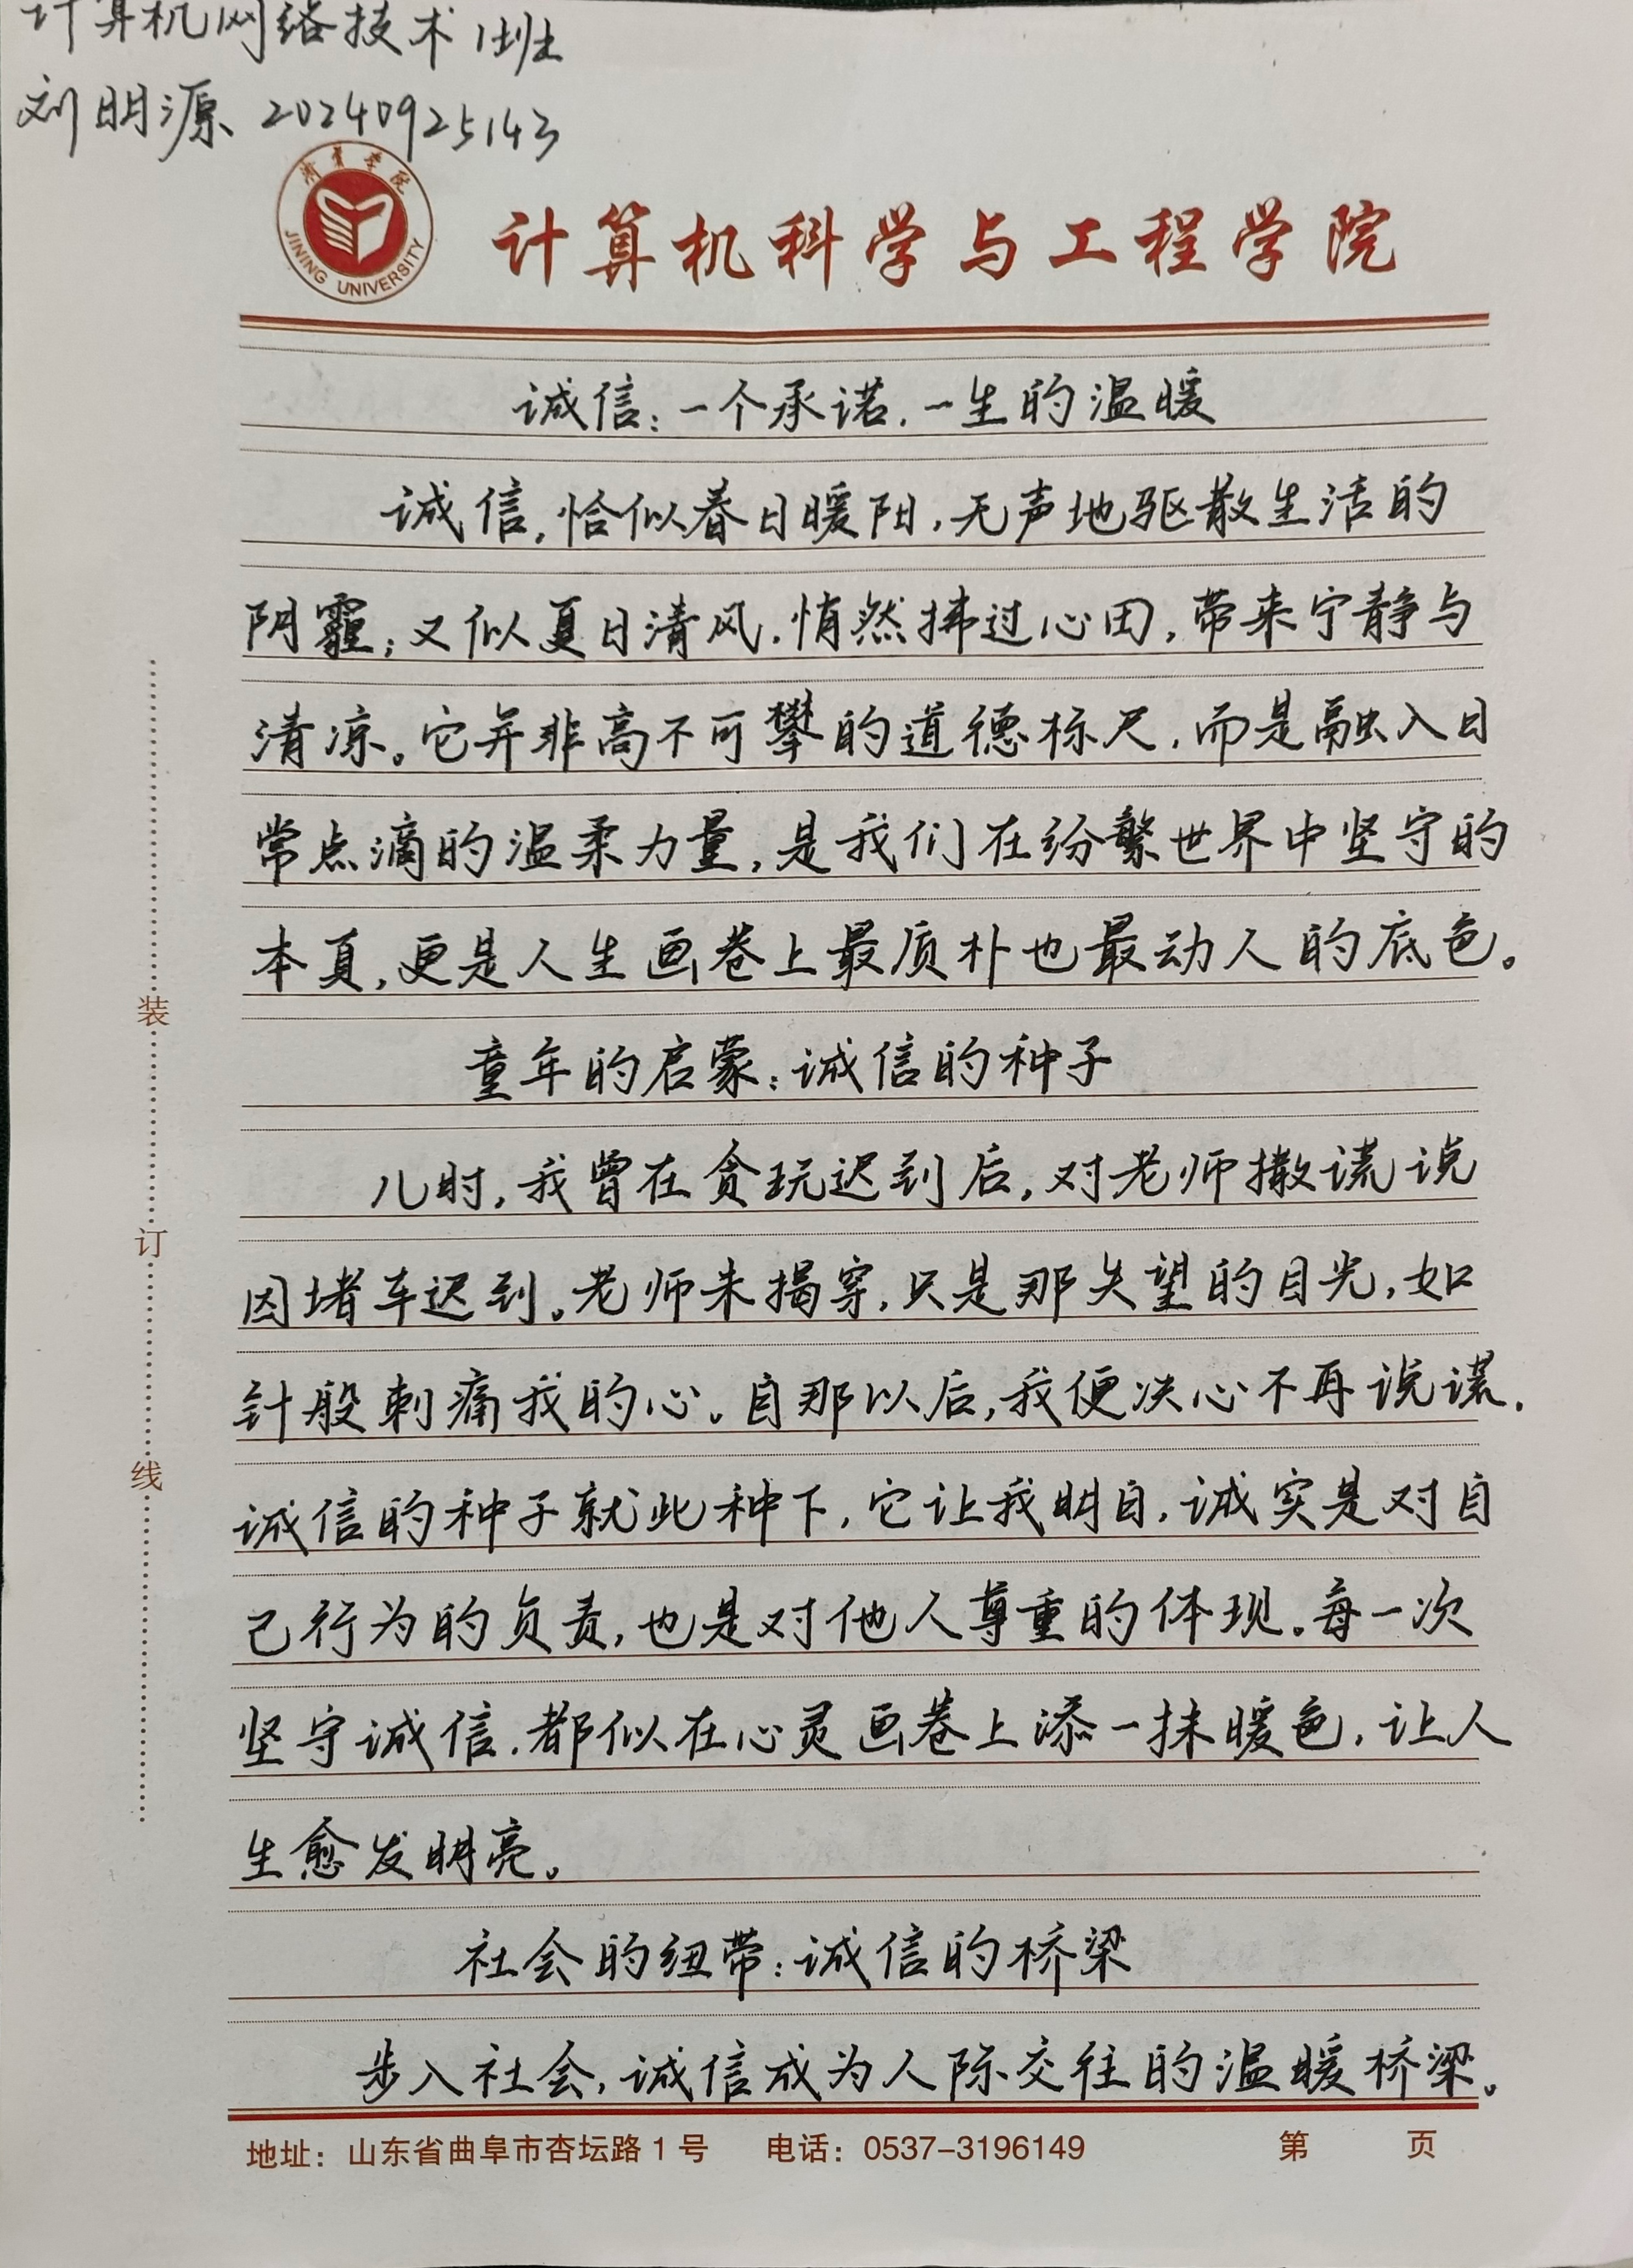 计算机网络技术1班
刘明源 20240925143
济宁学院
JINING UNIVERSITY
计算机科学与工程学院
诚信：一个承诺，一生的温暖
诚信，恰似春日暖阳，无声地驱散生活的
阴霾；又似夏日清风，悄然拂过心田，带来宁静与
清凉。它并非高不可攀的道德标尺，而是融入日
常点滴的温柔力量，是我们在纷繁世界中坚守的
本真，更是人生画卷上最质朴也最动人的底色。
童年的启蒙：诚信的种子
儿时，我曾在贪玩迟到后，对老师撒谎说
因堵车迟到。老师未揭穿，只是那失望的目光，如
针般刺痛我的心。自那以后，我便决心不再说谎．
诚信的种子就此种下，它让我明白，诚实是对自
己行为的负责，也是对他人尊重的体现。每一次
坚守诚信，都似在心灵画卷上添一抹暖色，让人
生愈发明亮。
社会的纽带：诚信的桥梁
步入社会，诚信成为人际交往的温暖桥梁。
装
订
线
地址：山东省曲阜市杏坛路1号 电话：0537-3196149 第 页